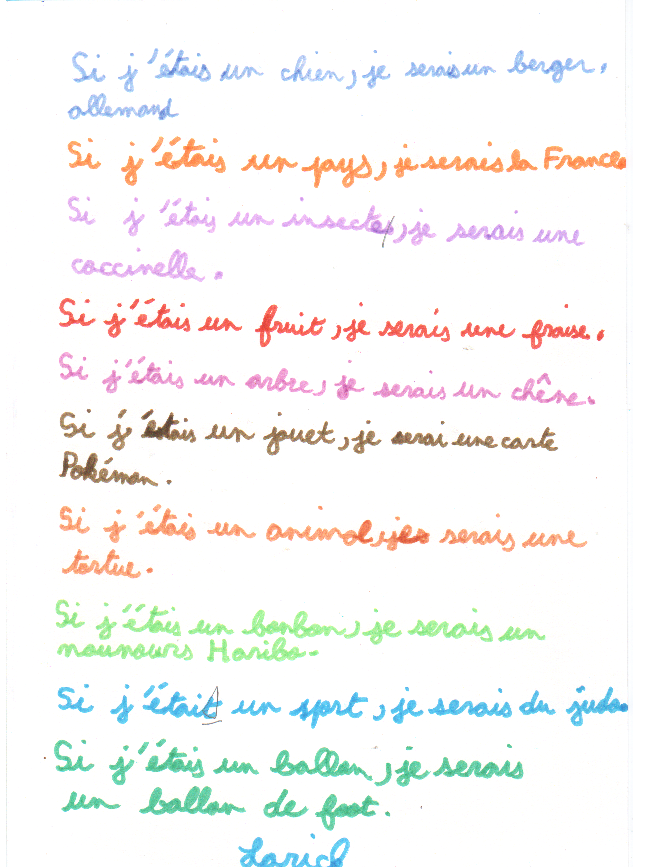 Si j'étais un chien, je serais un berger.
allemand
Si j'étais un pays, je serais la France.
Si j'étais un insecte, je serais une
coccinelle.
Si j'étais un fruit, je serais une fraise.
Si j'étais un arbre, je serais un chêne.
Si j'étais un jouet, je serai une carte
Pokémon.
Si j'étais un animal, je serais une
tortue.
Si j'étais un bonbon, je serais un
nounours Haribo.
Si j'était un sport, je serais du judo.
Si j'étais un ballon, je serais
un ballon de foot.